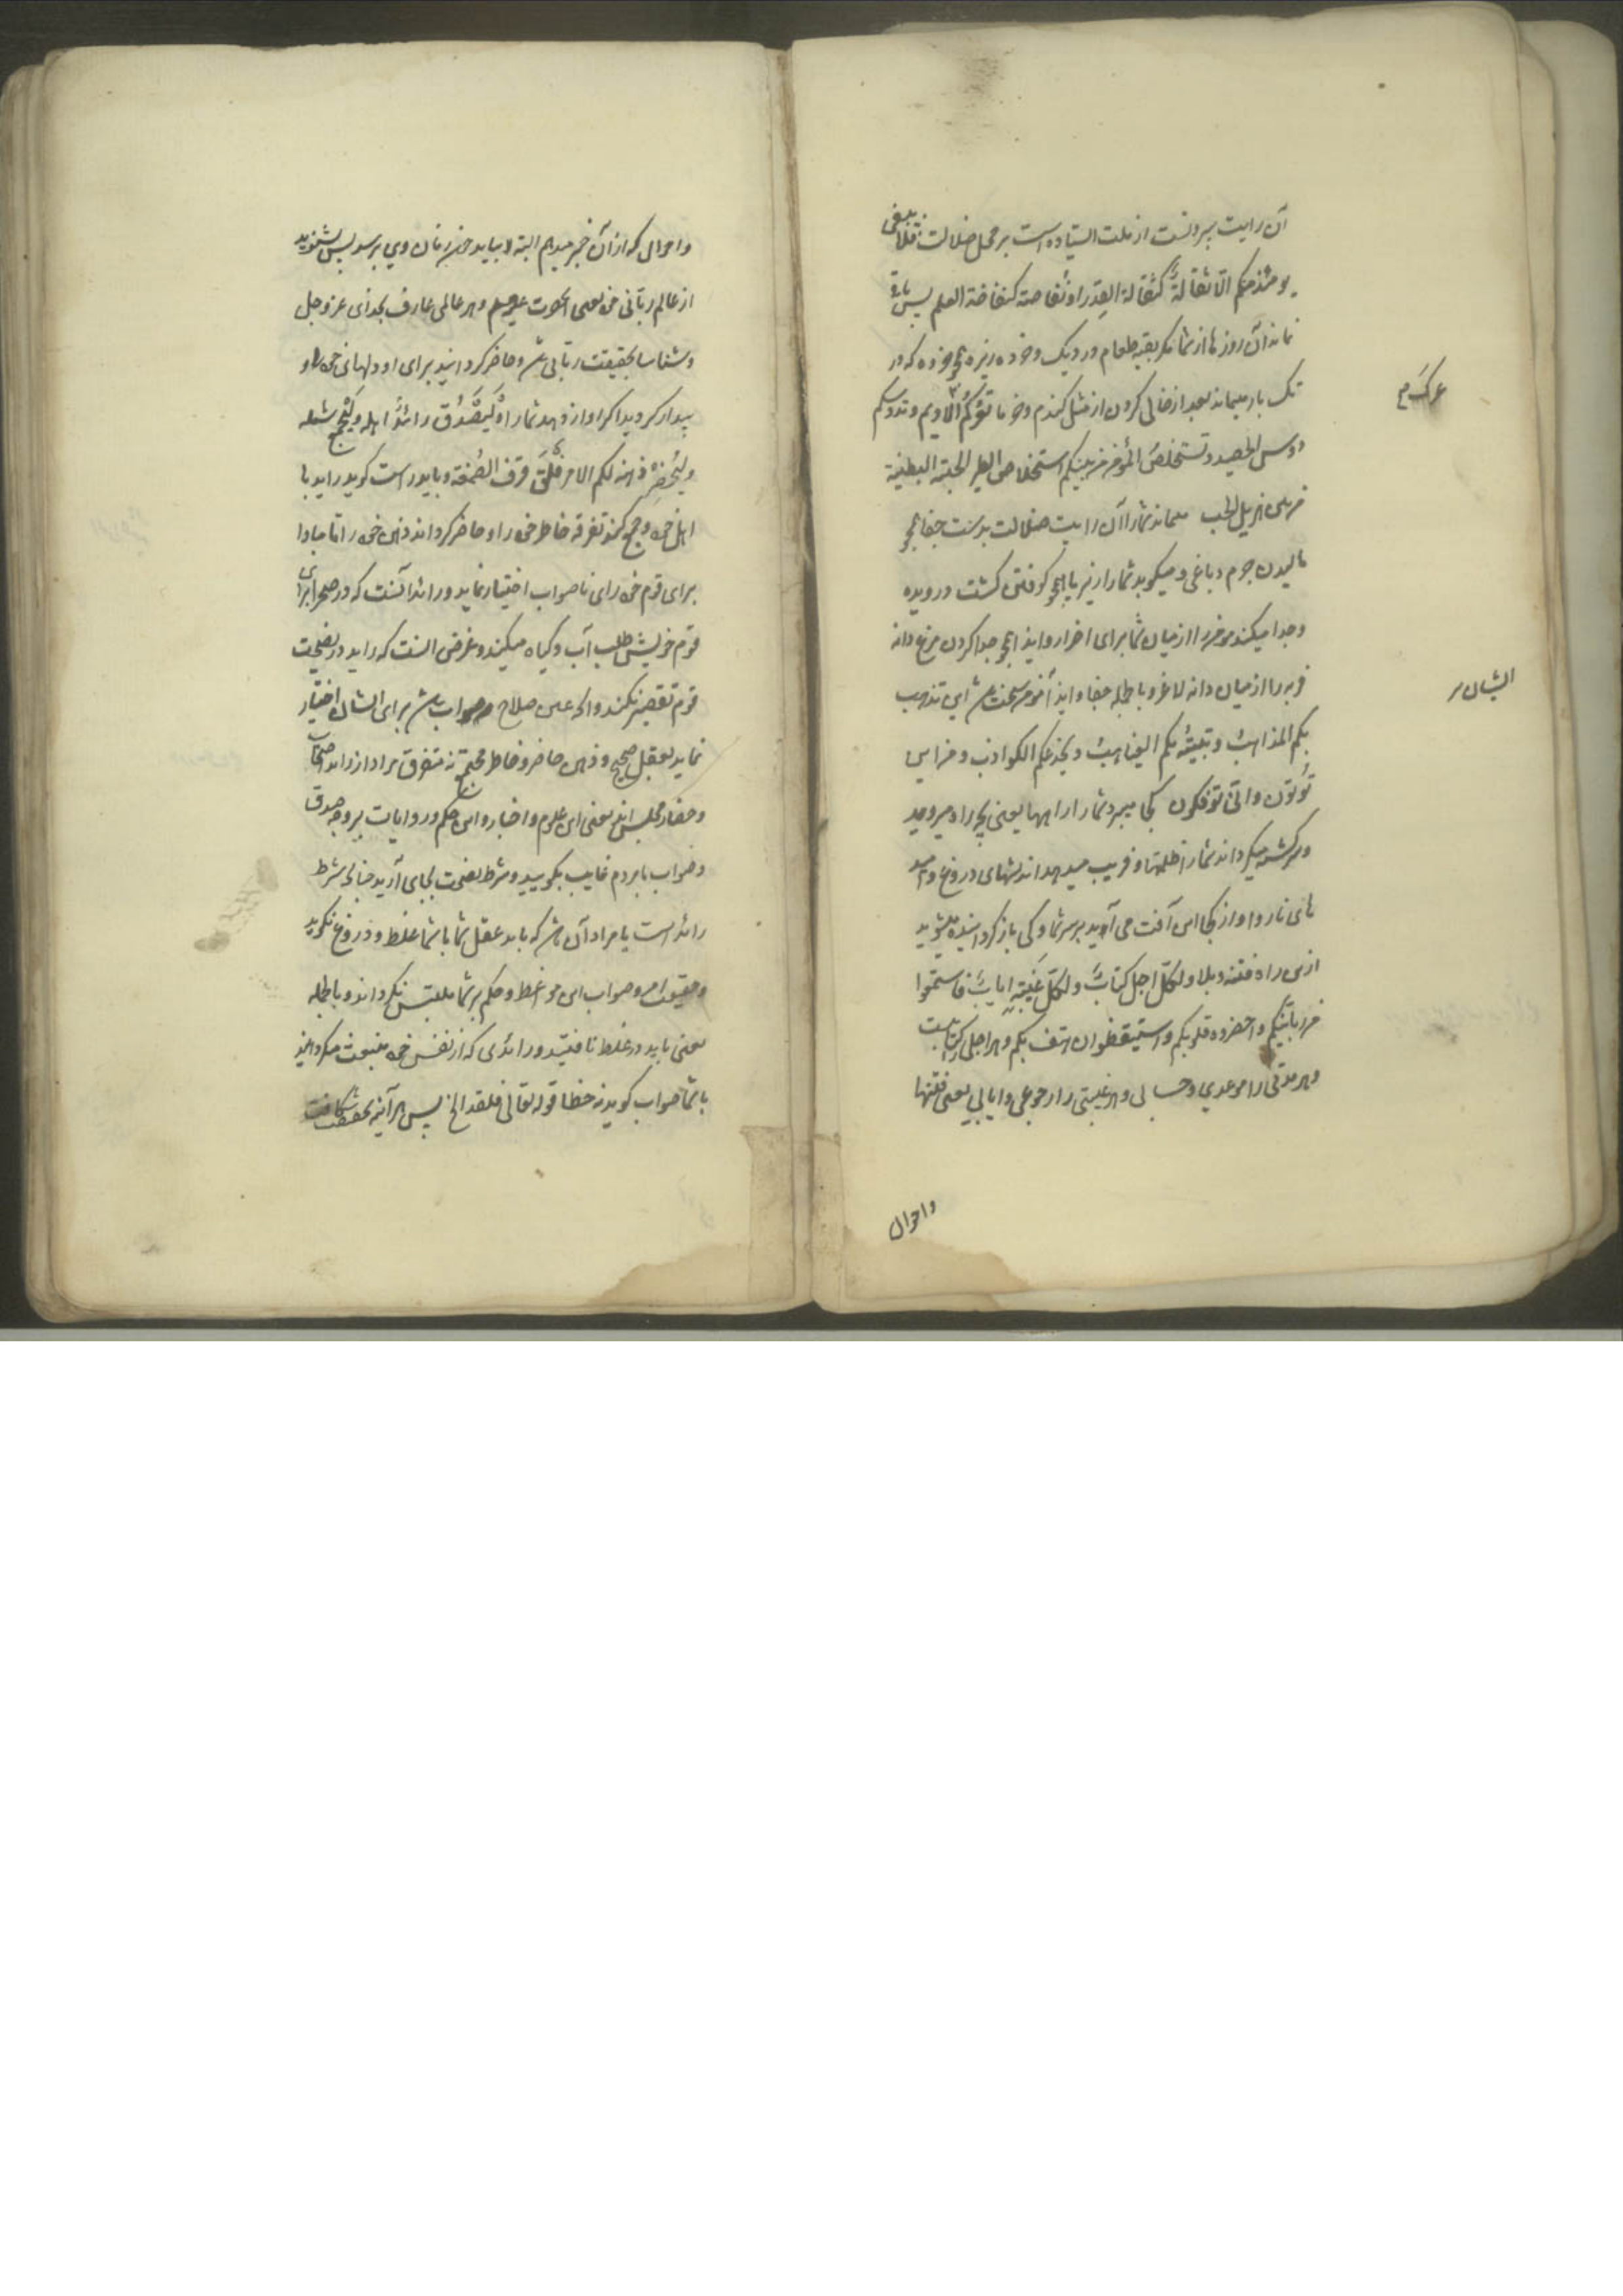 آن رایت بیرونست از ملت ایستاده است بر محل ضلالت فلا یبقی
یومئذ منکم الا ثفالةٌ کثفالة القِدر او نفاضة کنفاضة العِلم پس باقی
نماند آن روزها از شما مگر بقیه طعام در دیگ و خورده ریزه همچو خورده که در
تک بار میماند بعد از خالی کردن از مثل گندم و جو ما تعرککم الادیم و تدوسکم
عرک م
دوس الحصید و تستخلص المؤمن من بینکم استخلاص الطیر الحبة البطینة
من بین هزیل الحب میمالد شما را آن رایت ضلالت بدست جفا همچو
مالیدن چرم دباغی و میکوبد شما را زیر پا همچو کوفتن کشت درویده
و جدا میکند مومن را از میان شما برای اضرار و ایذا همچو جدا کردن مرغ دانه
فربه را از میان دانه لاغر و باطله جفا و ایذا آنمؤمن سخت باشد این تذهب
ایشان ر
بکم المذاهبُ و تتیه بکم الغیاهبُ و تخدعکم الکواذب و من این
تُؤتون و انّی تؤفکون کجا میبرد شما را راهها یعنی بچه راه میروید
و سرگشته میگرداند شما را ظلمتها و فریب میدهد اندیشهای دروغ و امید
های ناروا و از کجا این آفت می‌آید بر سر شما و کی بازگردانیده میشوید
ازین راه فتنه و بلا و لکل اجل کتابٌ و لکل غَیبةٍ ایابٌ فاستمعوا
من ربانیکم و احضروه قلوبکم و استیقظوا ان هتف بکم و هر اجلی را کتابیست
و هر مدتی را موعدی و حسابی و هر غیبتی را رجوعی و ایابی یعنی فتنها
واحوال
و احوالی که از آن خبر میدهم البته بیاید چون زمان وی برسد پس بشنوید
از عالم ربّانی خود یعنی آنحضرت علیه السلام و هر عالمی عارف بخدای عز و جل
و شناسا بحقیقت ربانی باشد و حاضر گردانید برای او دلهای خود را و
بیدار گردید اگر آواز دهد شما را و لیَصْدُق رائدٌ اهله و لیَجمع شمله
و لیُحضِر ذهنه فلقد فلق لکم الامر فلق الخرزة و قرفه قرف الصمغة و باید راست گوید راید با
اهل خود و جمع کند تفرقه خاطر خود را و حاضر گرداند ذهن خود را تا مبادا
برای قوم خود رای ناصواب اختیار نماید و رائد آنست که در صحرا برای
قوم خویش طلب آب و گیاه میکند و غرض آنست که راید در نصیحت
قوم تقصیر نکند و آنچه عین صلاح و صواب باشد برای ایشان اختیار
نماید بعقل صحیح و ذهن حاضر و خاطر مجتمع نه متفرق مراد از رائد اصحاب
و حضار مجلس‌اند یعنی این علوم و اخبار و این حکم و روایات بر وجه صدق
و صواب با مردم غایب بگویید و شرط نصیحت بجای آرید چنانچه شرط
رائد است یا مراد آن باشد که باید عقل شما با شما غلط و دروغ نگوید
و حقیقت امر و صواب این مواعظ و حکم بر شما ملتبس نگرداند و باطله
یعنی باید در غلط نافتید و رائدی که از نفس خود منبعث میگردانید
با شما صواب گوید نه خطا قوله تعالی فلقد الخ پس هر آینه بتحقیق شکافت